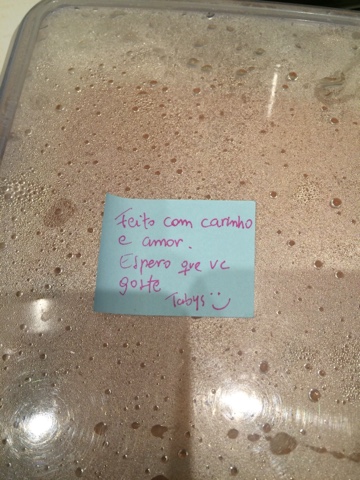 Feito com carinho
e amor.
Espero que vc
goste
Tabys :)